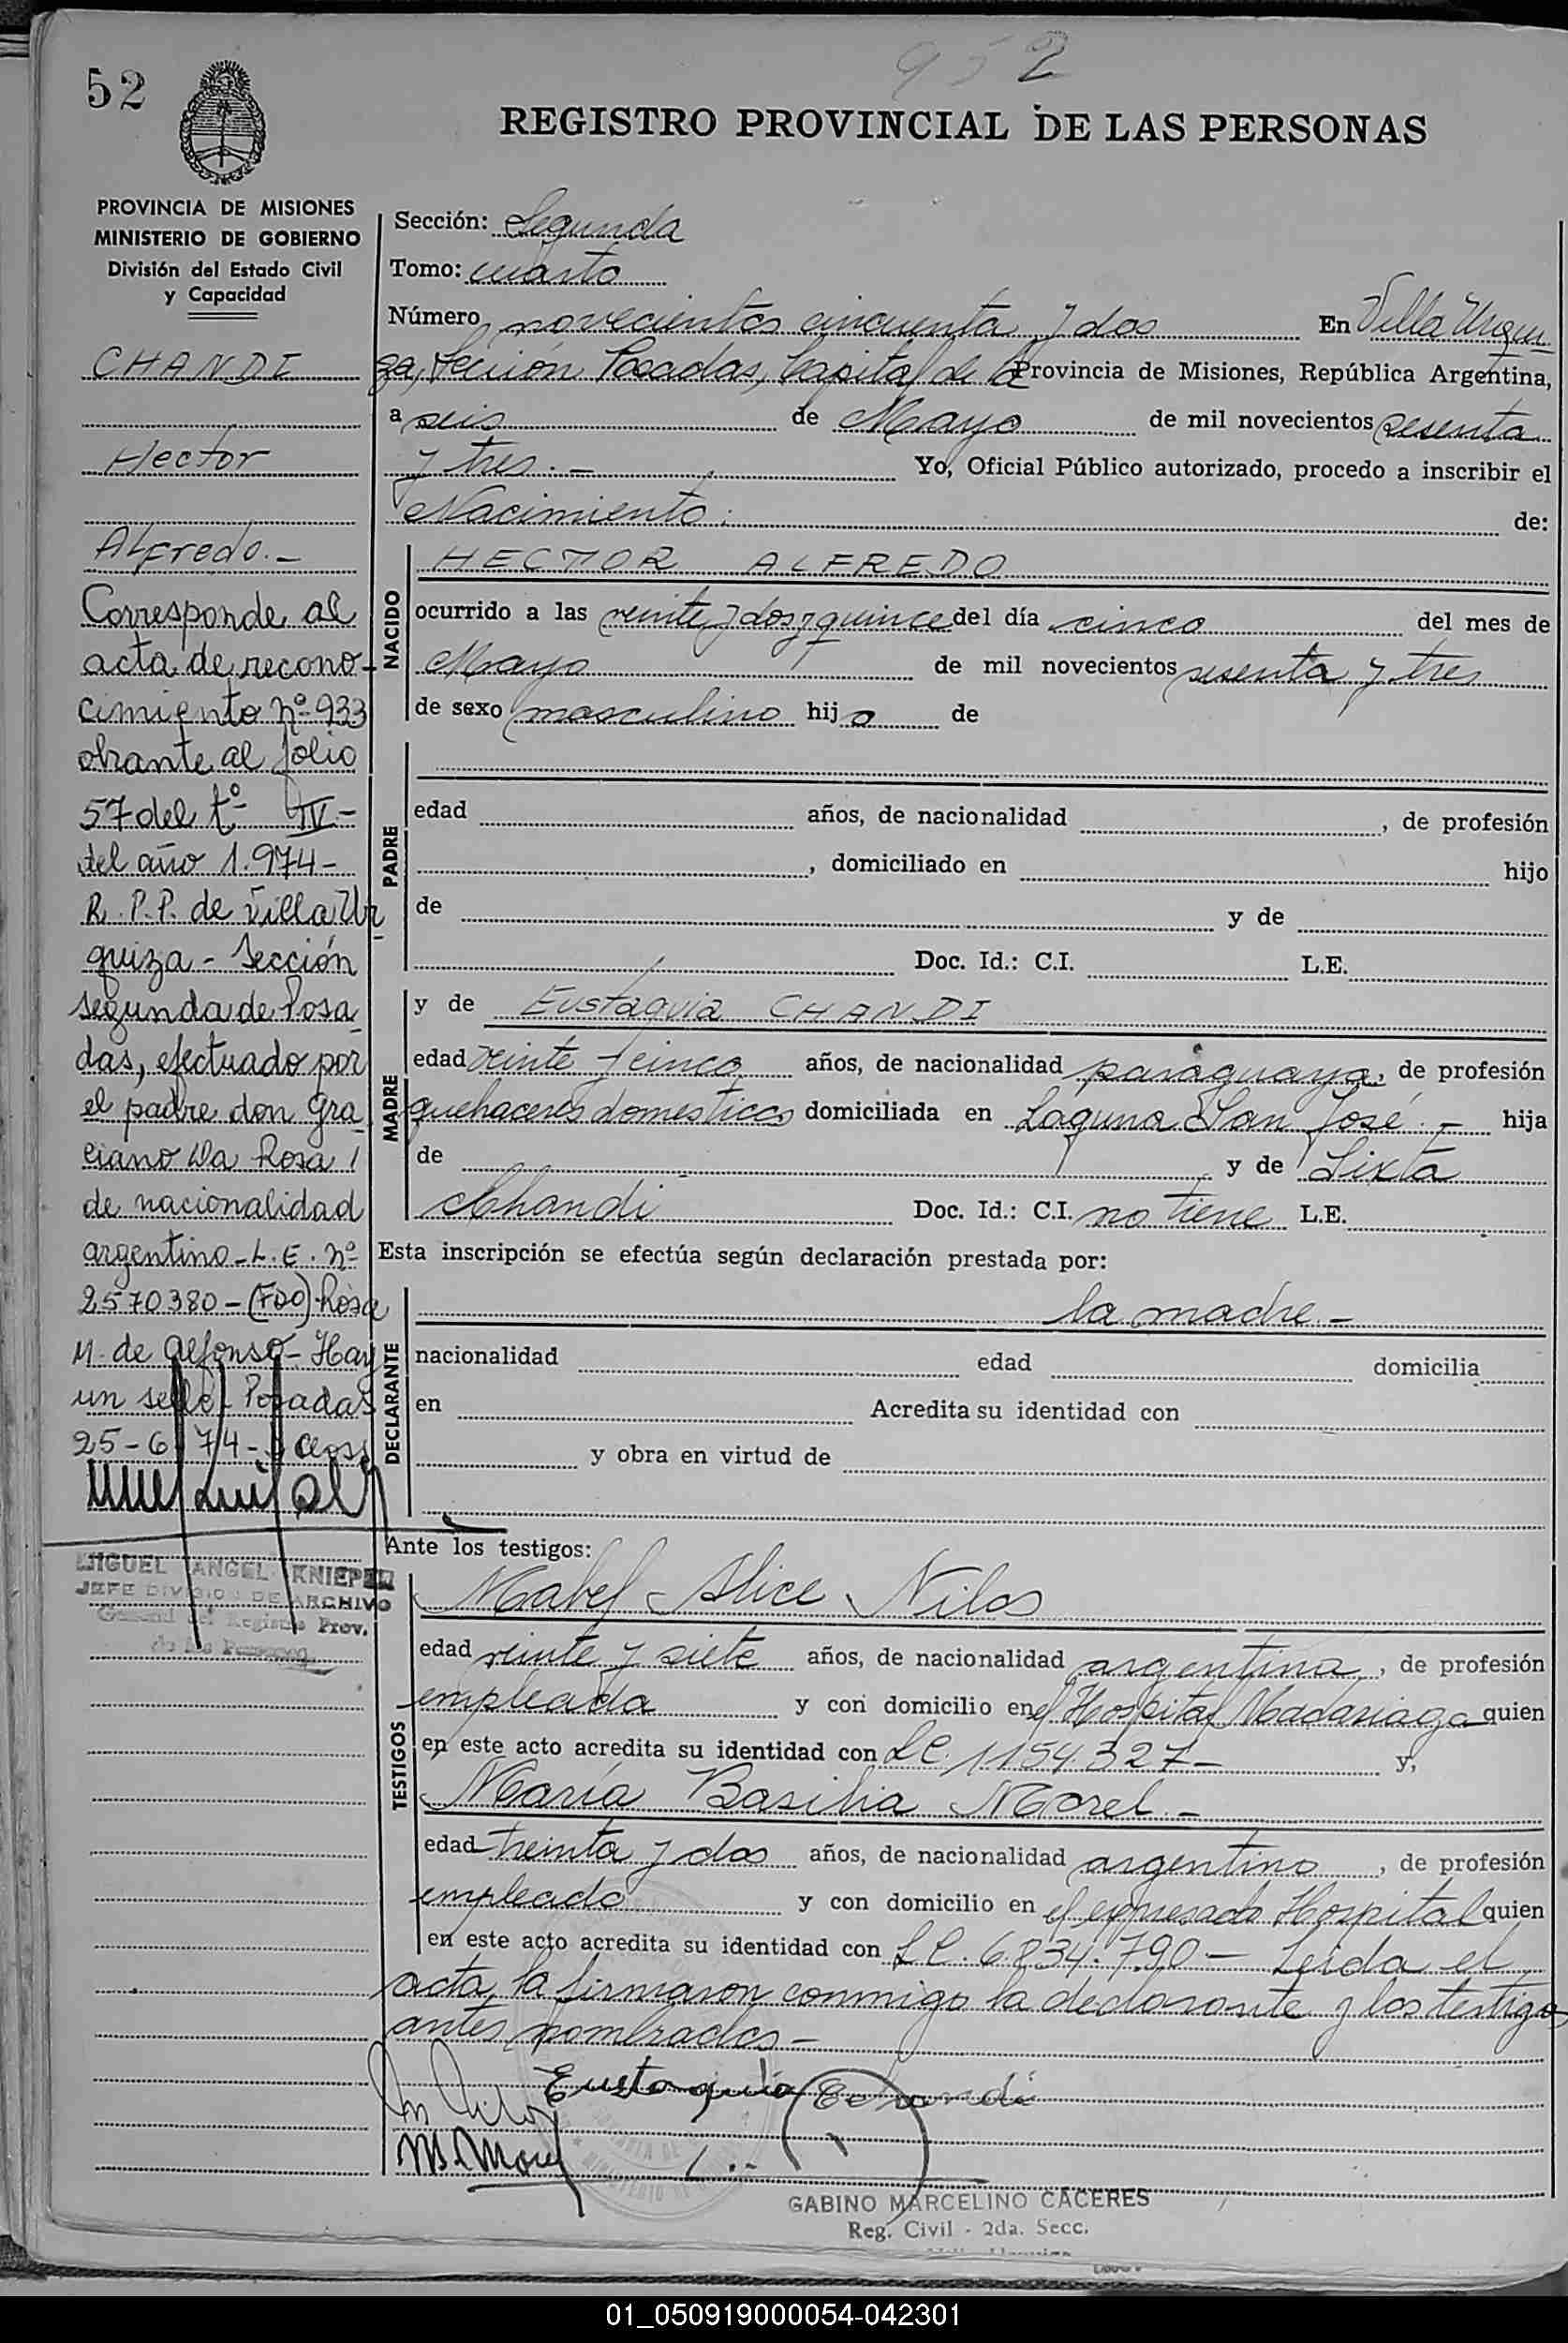 952
52
REGISTRO PROVINCIAL DE LAS PERSONAS
PROVINCIA DE MISIONES
MINISTERIO DE GOBIERNO
División del Estado Civil
y Capacidad
CHANDI
Hector
Alfredo.-
Corresponde al
acta de recono-
cimiento nº 933
obrante al folio
57 del tº IV-
del año 1.974-
R.P.P. de Villa Ur
quiza - Sección
segunda de Posa
das, efectuado por
el padre don Gra
ciano Da Rosa
de nacionalidad
argentino - L.E. nº
2570380 - (FDO) Rosa
M. de Alfonso - Hay
un sello Posadas
25-6-74-
MIGUEL ANGEL KNIEPER
JEFE DIVISION DE ARCHIVO
General del Registro Prov.
de las Personas
Sección: Segunda
Tomo: cuarto
Número novecientos cincuenta y dos En Villa Urqui
za, Sección Posadas, Capital de la Provincia de Misiones, República Argentina,
a seis de Mayo de mil novecientos sesenta
y tres.- Yo, Oficial Público autorizado, procedo a inscribir el
Nacimiento: de:
NACIDO
HECTOR ALFREDO
ocurrido a las veinte y dos y quince del día cinco del mes de
Mayo de mil novecientos sesenta y tres
de sexo masculino hijo de
PADRE
edad años, de nacionalidad , de profesión
, domiciliado en hijo
de y de
Doc. Id.: C.I. L.E.
MADRE
y de Eustaquia CHANDI
edad veinte y cinco años, de nacionalidad paraguaya, de profesión
quehaceres domesticos domiciliada en Laguna San José.- hija
de y de Sixta
Chandi Doc. Id.: C.I. no tiene L.E.
Esta inscripción se efectúa según declaración prestada por:
DECLARANTE
la madre.-
nacionalidad edad domicilia
en Acredita su identidad con
y obra en virtud de
Ante los testigos:
TESTIGOS
Mabel Alice Nilos
edad veinte y siete años, de nacionalidad argentina, de profesión
empleada y con domicilio en el Hospital Madariaga quien
en este acto acredita su identidad con LC. 1154.327- y,
María Basilia Morel.-
edad treinta y dos años, de nacionalidad argentino, de profesión
empleado y con domicilio en el expresado Hospital quien
en este acto acredita su identidad con LC. 6.834.790.- Leida el
acta, la firmaron conmigo la declarante y los testigos
antes nombrados-
Eustaquia Chandi
M. Morel
GABINO MARCELINO CACERES
Reg. Civil - 2da. Secc.
01_050919000054-042301